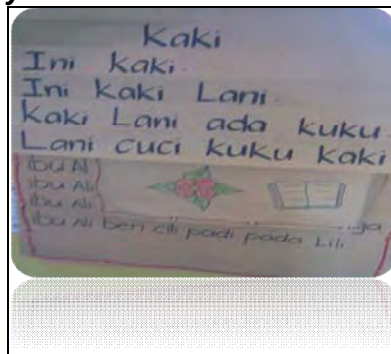 Kaki
Ini kaki.
Ini kaki Lani
Kaki Lani ada kuku
Lani cuci kuku kaki
Ibu Al
Ibu Ali
Ibu Ali ja
Ibu Ali beri cili padi pada Lili